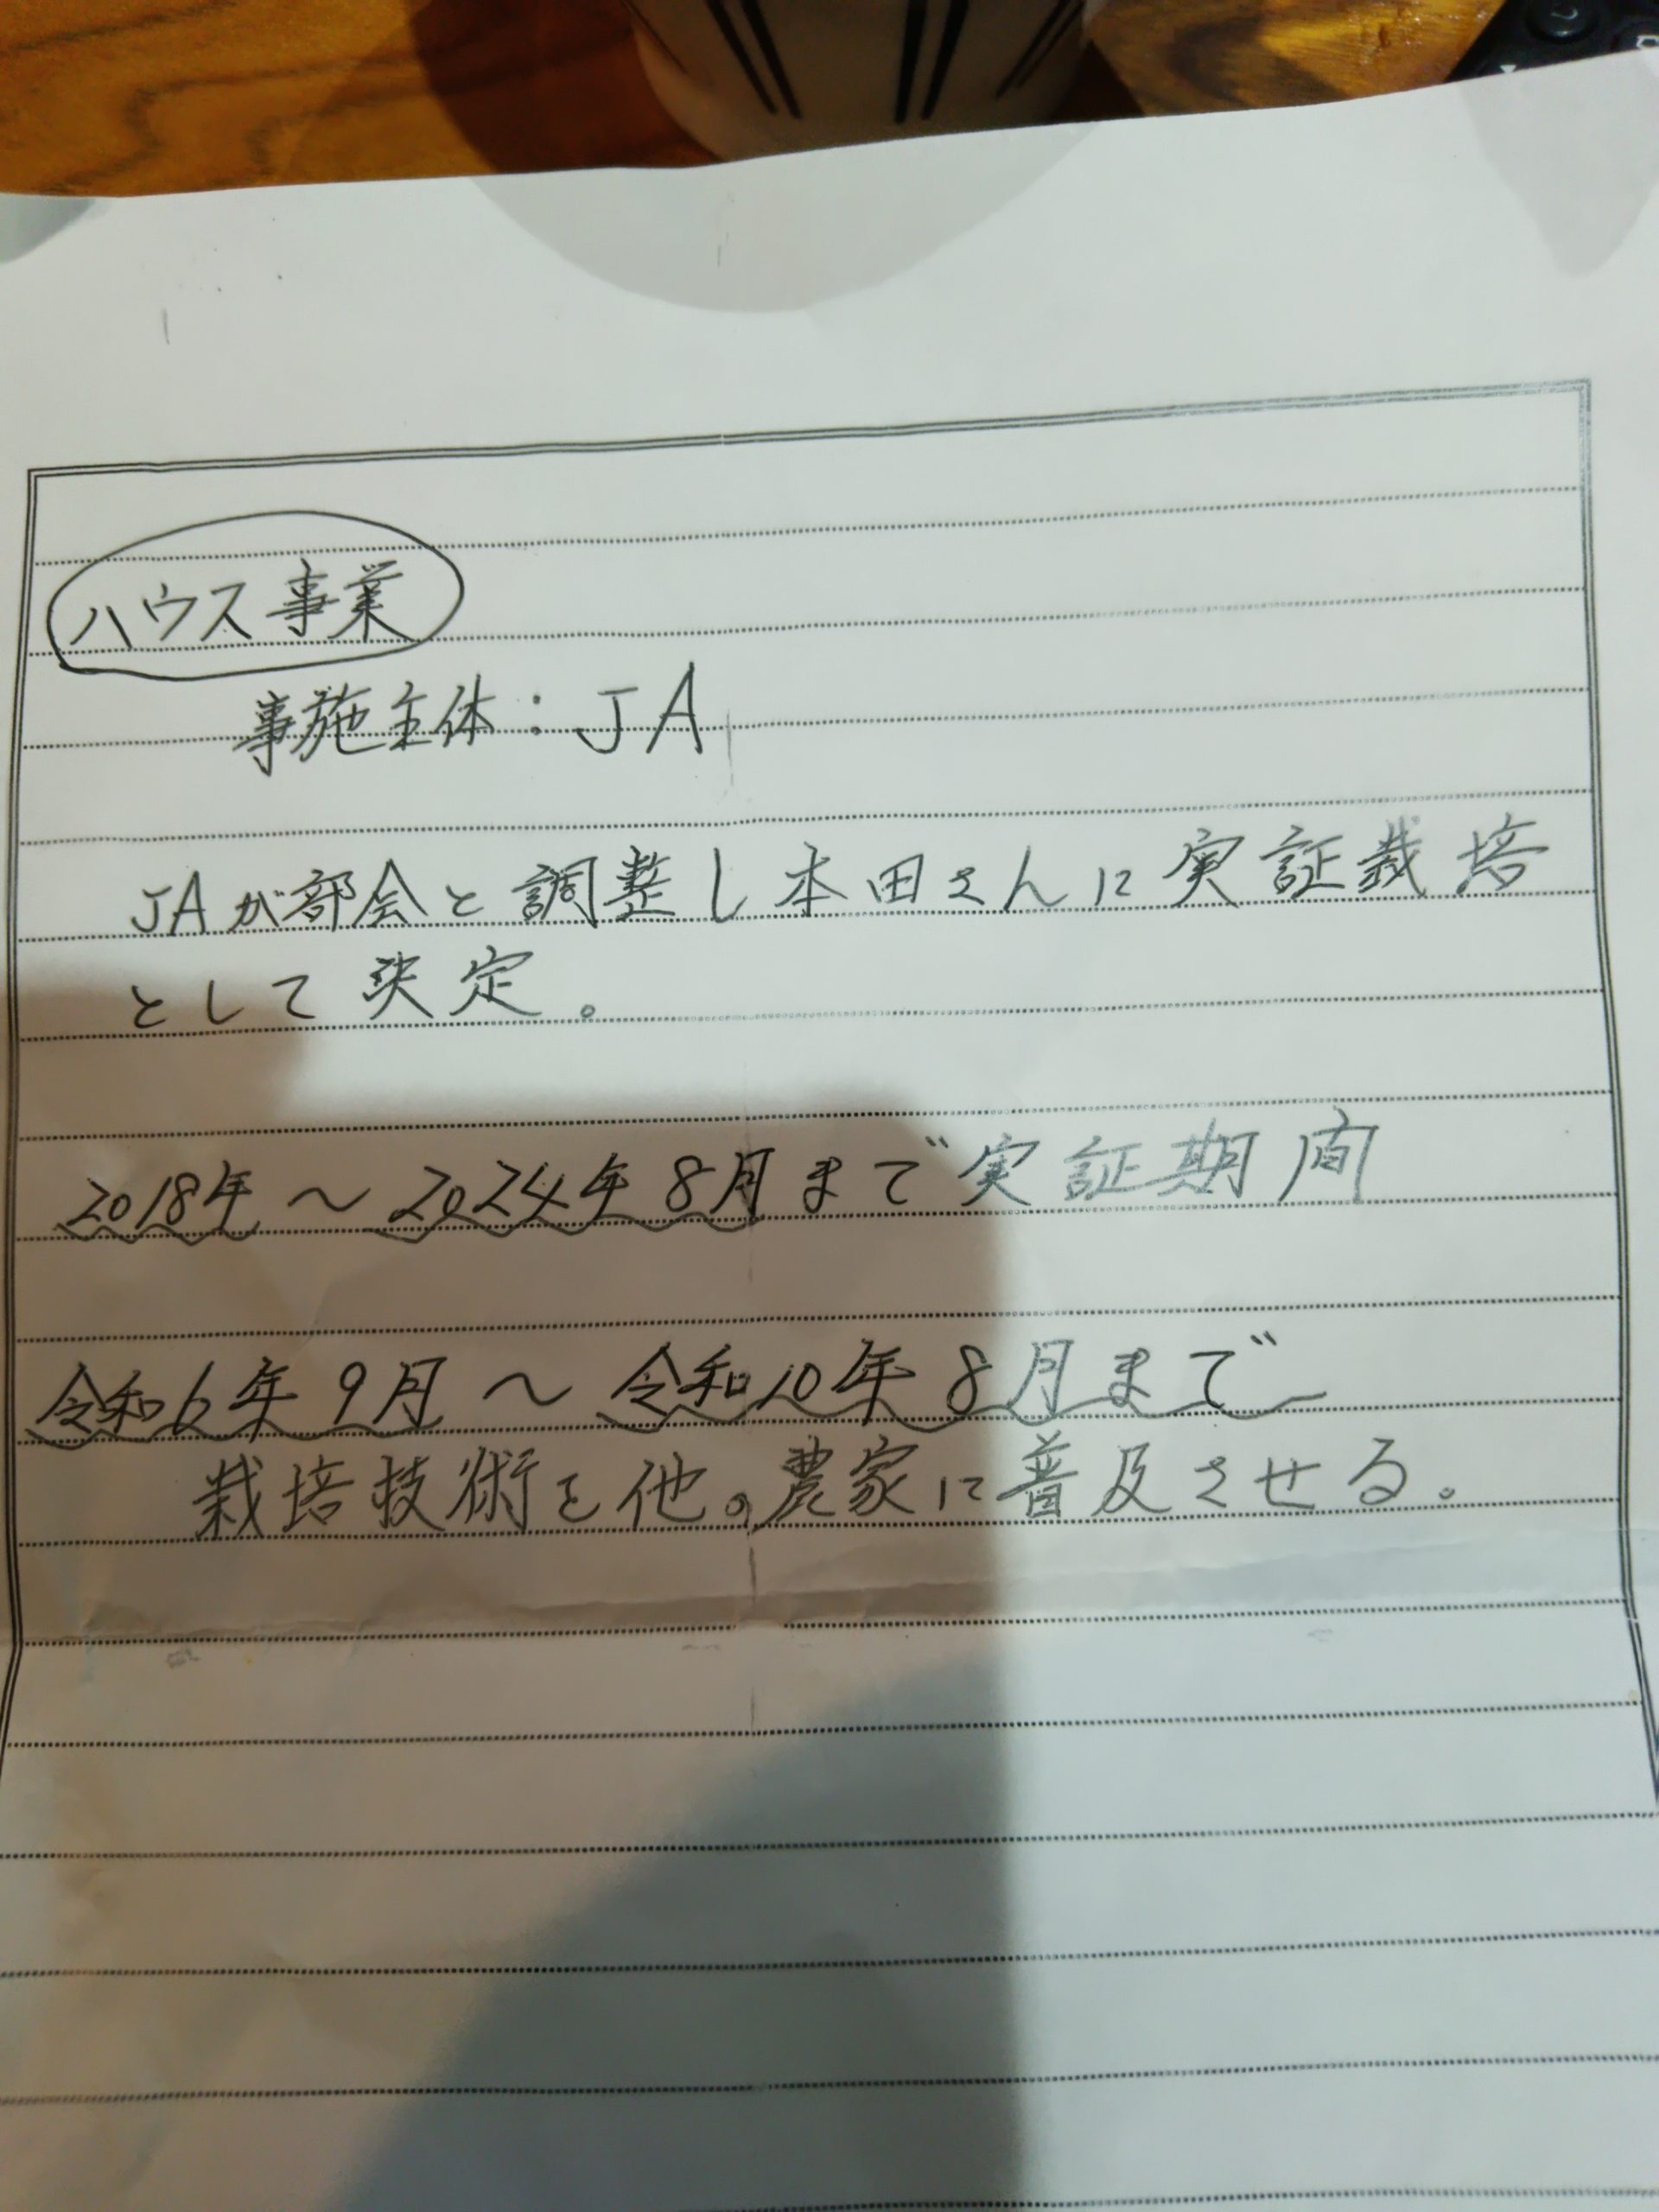 ハウス事業
事施主体：JA
JAが部会と調整し本田さんに実証栽培
として決定。
2018年～2024年8月まで実証期間
令和6年9月～令和10年8月まで
栽培技術を他の農家に普及させる。